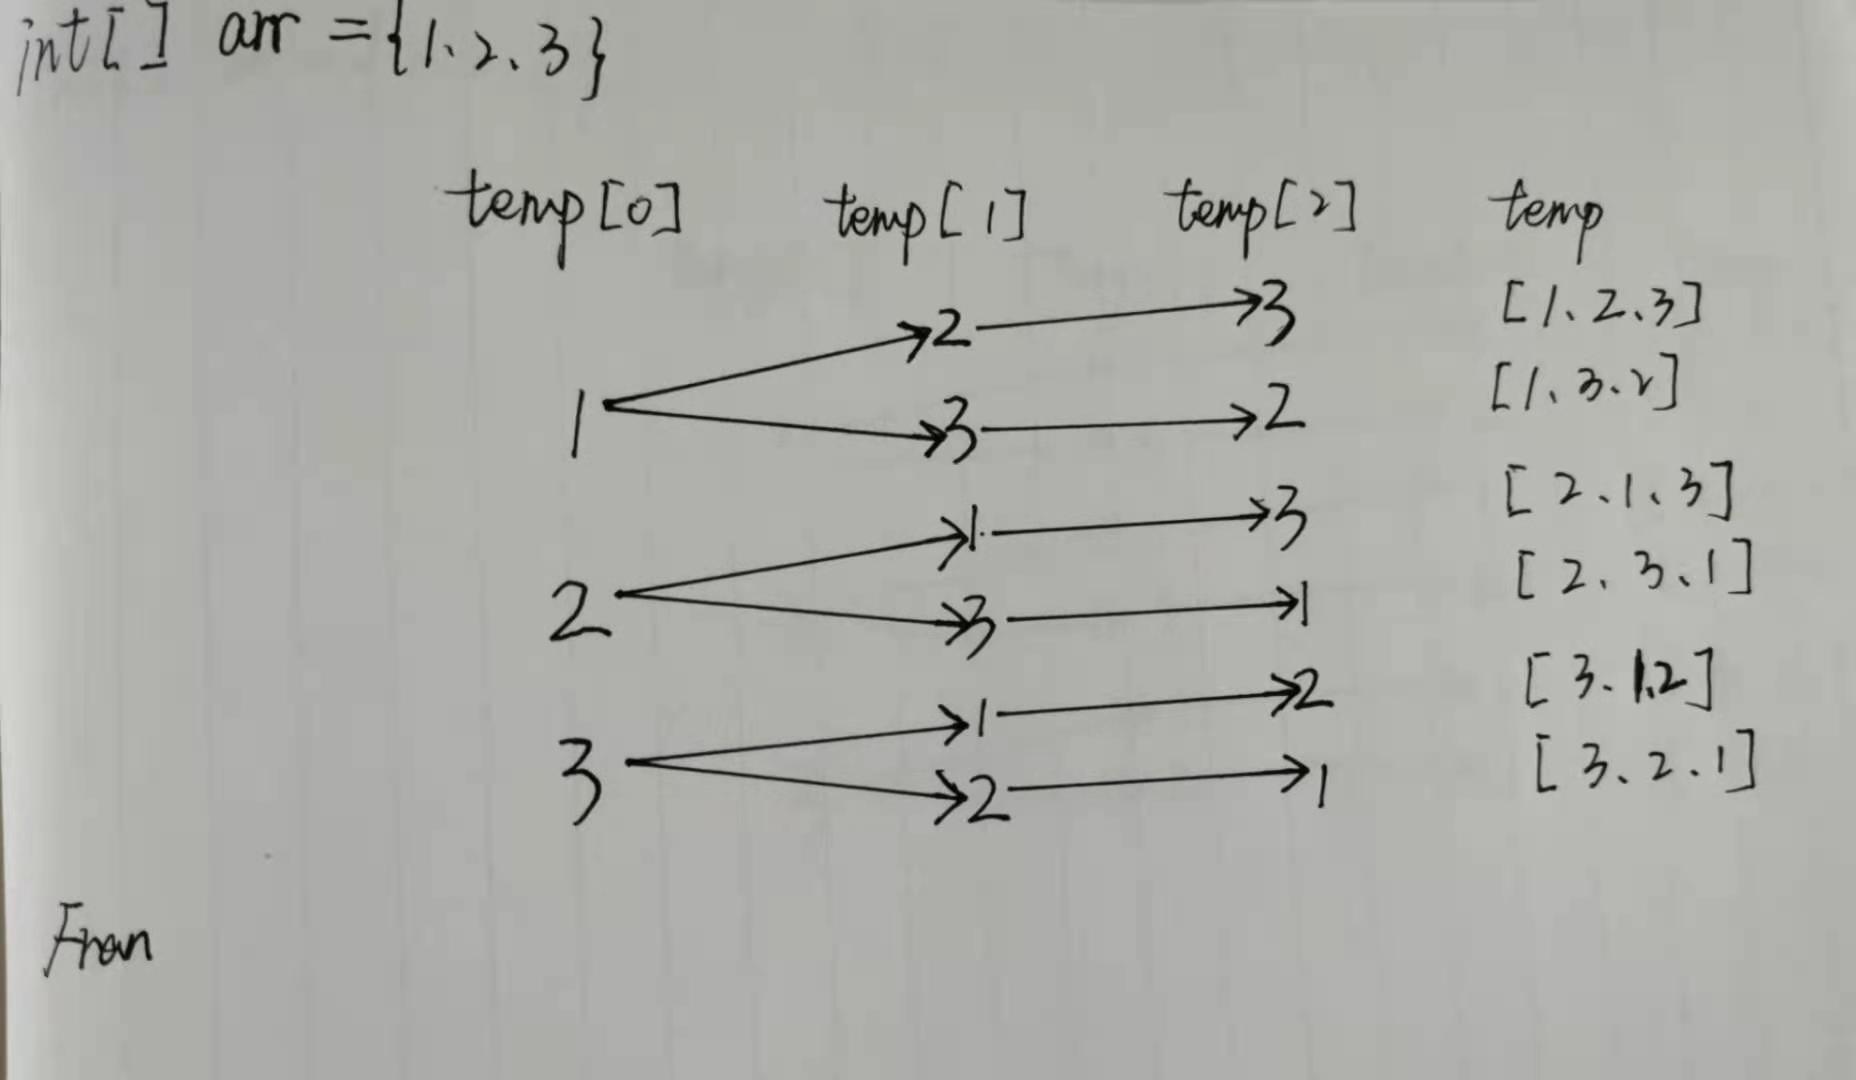 int[] arr = {1、2、3}
temp[0] temp[1] temp[2] temp
1 2 3 [1、2、3]
3 2 [1、3、2]
2 1 3 [2、1、3]
3 1 [2、3、1]
3 1 2 [3、1、2]
2 1 [3、2、1]